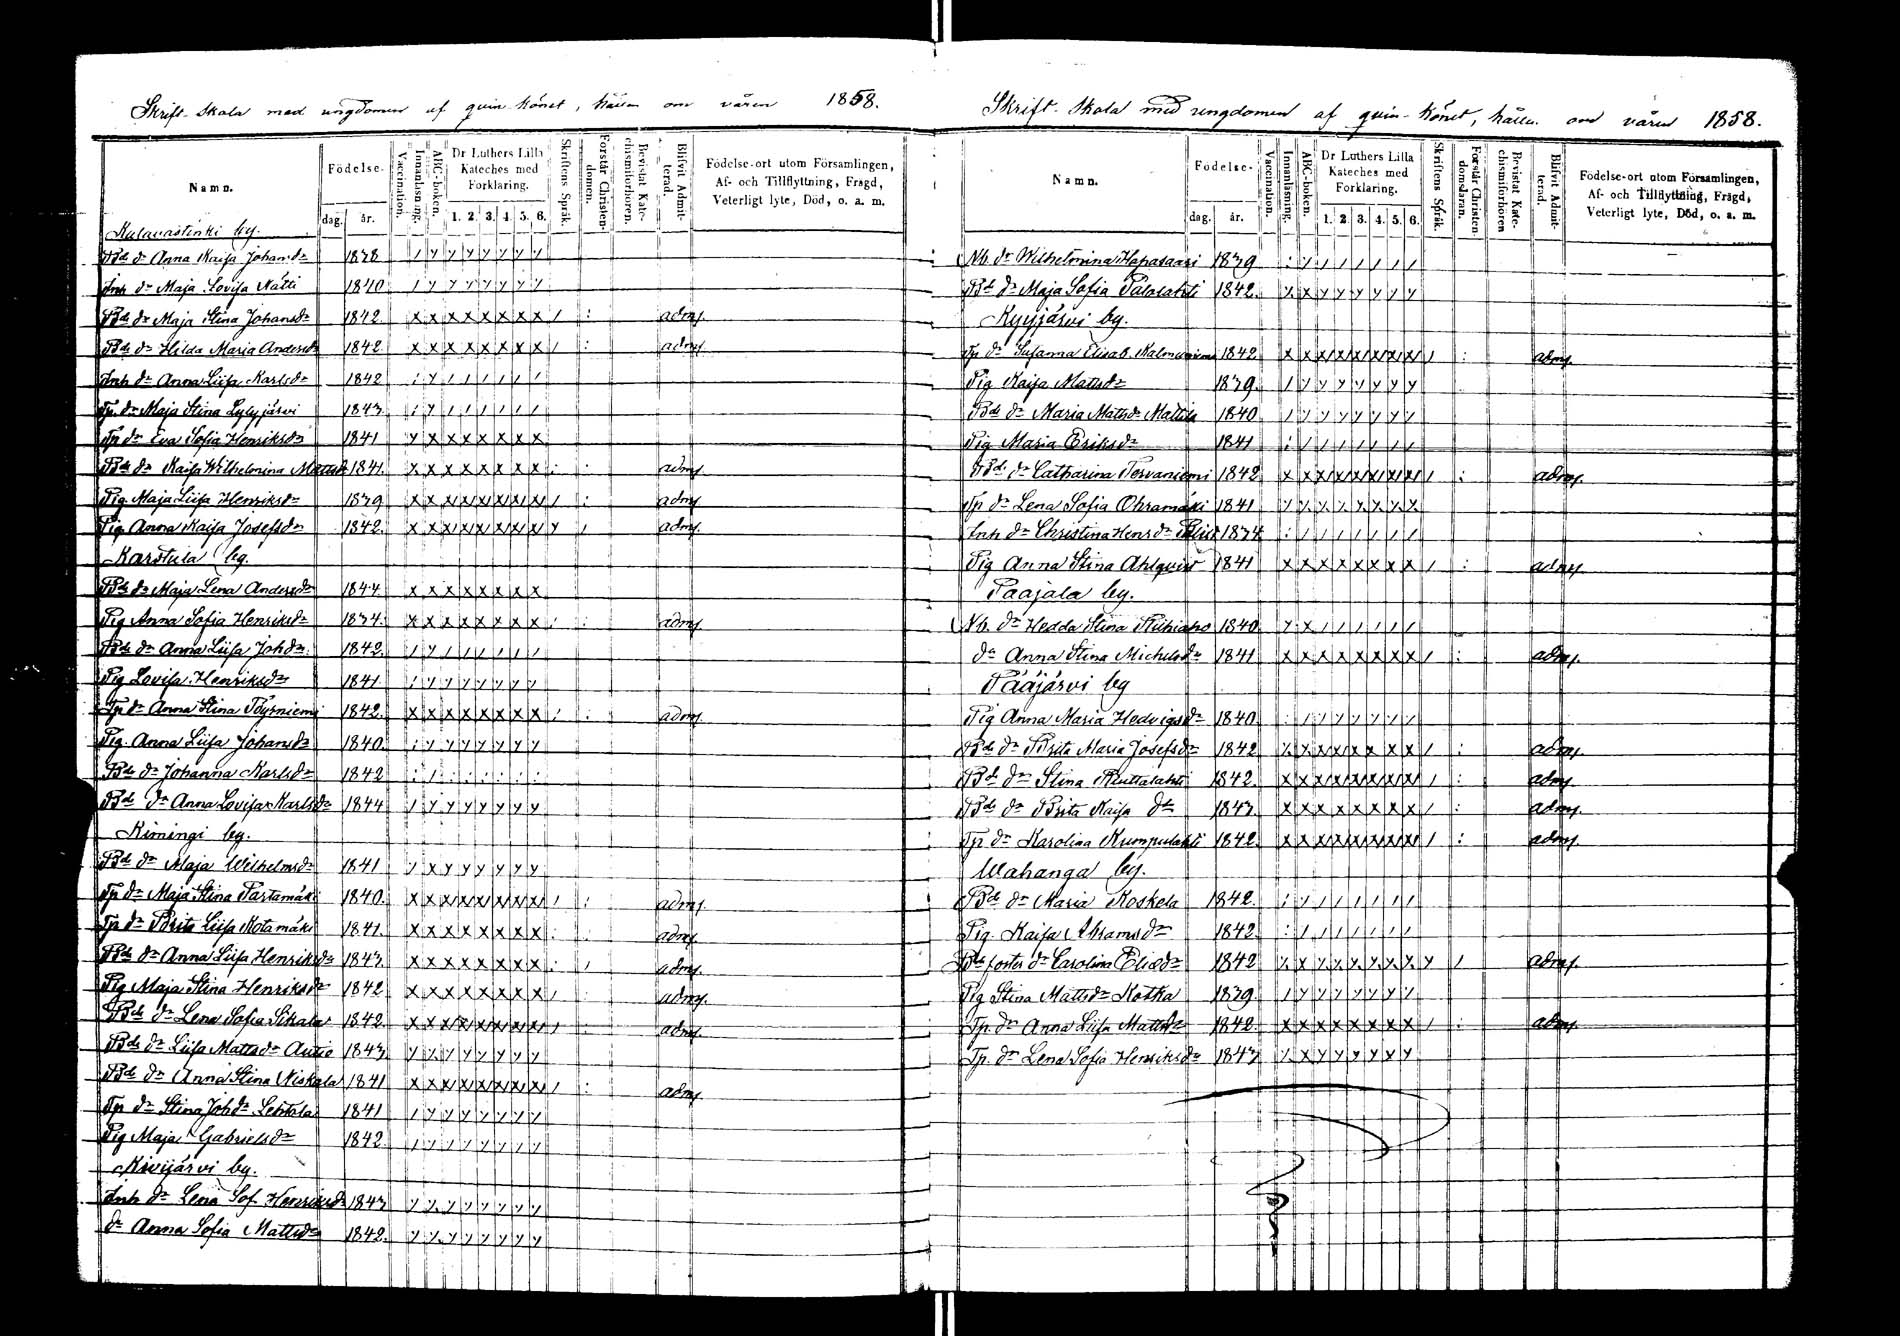 Skrift-skola med ungdomen af quin-könet, hållen om våren 1858.
Namn. Födelse- dag. år. Vaccination. Innanläsning. ABC-boken. Dr Luthers Lilla Kateches med Forklaring. 1. 2. 3. 4. 5. 6. Skriftens Språk. Förstår Christendomen. Bevistat Katechismiförhören. Blifvit Admitterad. Födelse-ort utom Församlingen, Af- och Tillflyttning, Frägd, Veterligt lyte, Död, o. a. m.
by.
Bd. dr Anna Kaisa Johansdr 1838 / y y y y y y y
Inh dr Maja Lovisa Nätti 1840 / y y y y y y y
Bd. dr Maja Stina Johansdr 1842 x x x x x x x x / : adm.
Bd. dr Hilda Maria Andersdr 1842 x x x x x x x x / : adm.
Inh dr Anna Liisa Karlsdr 1842 : y / / / / / /
Tp. dr Maja Stina Lylyjärvi 1843 : y / / / / / /
Tp dr Eva Sofia Henriksdr 1841 y x x x x x x x
Bd. dr Kaisa Wilhelmina Mattsdr 1841. x x x x x x x x : : adm.
Pig. Maja Liisa Henriksdr 1839 x x x x x x x x / : adm.
Pig. Anna Kaisa Josefsdr 1842. x x x x x x x x y / adm.
Karstula by.
Bd. dr Maja Lena Andersdr 1844 x x x x x x x x
Pig Anna Sofia Henriksdr 1834. x x x x x x x x : : adm.
Bd. dr Anna Liisa Johdr. 1842. / y / / / / / /
Pig Lovisa Henriksdr 1841 : y y y y y y y
Tp dr Anna Stina Töyrniemi 1842. x x x x x x x x / : adm.
Pig. Anna Liisa Johansdr 1840. : y y y y y y y
Bd. dr Johanna Karlsdr 1842 : / : : : : : :
Bd. dr Anna Lovisa Karlsdr 1844 / y y y y y y y
Kimingi by.
Bd. dr Maja Wilhelmsdr 1841 y x y y y y y y
Tp dr Maja Stina Partamäki 1840. x x x x x x x x / : adm.
Tp dr Brita Liisa Kotamäki 1841. x x x x x x x x : : adm.
Bd. dr Anna Liisa Henriksdr 1843. x x x x x x x x : / adm.
Pig Maja Stina Henriksdr 1842 x x x x x x x x / adm.
Bd. dr Lena Sofia Sikala 1842. x x x x x x x x / : adm.
Bd. dr Liisa Mattsdr Autio 1843 y y y y y y y y
Bd. dr Anna Stina Niskala 1841 x x x x x x x x / : adm.
Tp dr Stina Johdr Lehtola 1841 / y y y y y y y
Pig Maja Gabrielsdr 1842 / y y y y y y y
Kivijärvi by.
Inh dr Lena Sof. Henriksdr 1843 y y y y y y y y
dr Anna Sofia Mattsdr 1842. y y y y y y y y
Skrift-skola med ungdomen af quin-könet, hållen om våren 1858.
Namn. Födelse- dag. år. Vaccination. Innanläsning. ABC-boken. Dr Luthers Lilla Kateches med Forklaring. 1. 2. 3. 4. 5. 6. Skriftens Språk. Förstår Christendomsläran. Bevistat Katechismiförhören Blifvit Admitterad. Födelse-ort utom Församlingen, Af- och Tillflyttning, Frägd, Veterligt lyte, Död, o. a. m.
Nb. dr Wilhelmina Hapasaari 1839 : y / / / / / /
Bd. dr Maja Sofia Palolahti 1842. y x y y y y y y
Kyyjärvi by.
Tp dr Susanna Elisab. 1842 x x x x x x x x / : adm.
Pig Kaisa Mattsdr 1839. / y y y y y y y
Bd. dr Maria Mattsdr Mattila 1840 / y y y y y y y
Pig Maria Eriksdr 1841 : / / / / / / /
Bd. dr Catharina Tervaniemi 1842 x x x x x x x x / : adm.
Tp dr Lena Sofia Ohramäki 1841 y y y y y y y x
Inh dr Christina Hensdr 1834 : / / / / / / /
Pig Anna Stina Ahlqvist 1841 x x x x x x x x / : adm.
Paajala by.
Nb. dr Hedda Stina Riihiaho 1840 y x / / / / / /
dr Anna Stina Michelsdr 1841 x x x x x x x x / : adm.
Pääjärvi by
Pig Anna Maria Hedvigsdr 1840. : / y y y y y /
Bd. dr Brita Maria Josefsdr 1842 y x x x x x x x / : adm.
Bd. dr Stina Ruuttalahti 1842. x x x x x x x x / : adm.
Bd. dr Brita Kaisa do 1843. x x x x x x x x / : adm.
Tp dr Karolina Kumpulahti 1842. x x x x x x x x / : adm.
Wahanga by.
Bd. dr Maria Koskela 1842. : y / / / / / /
Pig. Kaisa Abramsdr 1842 : / / / / / / /
Bd. foster dr Carolina Eliædr 1842 y x y y y y y y y / adm.
Pig Stina Mattsdr Kotka 1839 / y y y y y y y
Tp. dr Anna Liisa Mattsdr 1842. x x x x x x x x / : adm.
Tp. dr Lena Sofia Henriksdr 1843 y x y y y y x y